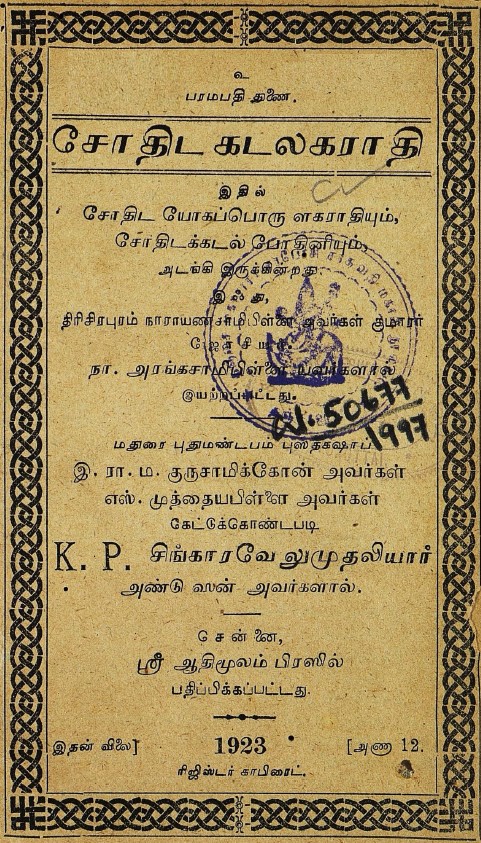 உ
பரமபதி துணை.
சோதிட கடலகராதி
இதில்
சோதிட யோகப்பொரு ளகராதியும்,
சோதிடக்கடல் போதினியும்,
அடங்கி இருக்கின்றது.
இது,
திரிசிரபுரம் நாராயணசாமிபிள்ளை அவர்கள் குமாரர்
நா. அரங்கசாமிபிள்ளை யவர்களால்
இயற்றப்பட்டது.
50677
1997
மதுரை புதுமண்டபம் புஸ்தகஷாப்
இ. ரா. ம. குருசாமிக்கோன் அவர்கள்
எஸ். முத்தையபிள்ளை அவர்கள்
கேட்டுக்கொண்டபடி
K. P. சிங்காரவேலுமுதலியார்
அண்டு ஸன் அவர்களால்.
சென்னை,
ஸ்ரீ ஆதிமூலம் பிரஸில்
பதிப்பிக்கப்பட்டது.
இதன் விலை] 1923 [அணா 12.
ரிஜிஸ்டர் காபிரைட்.